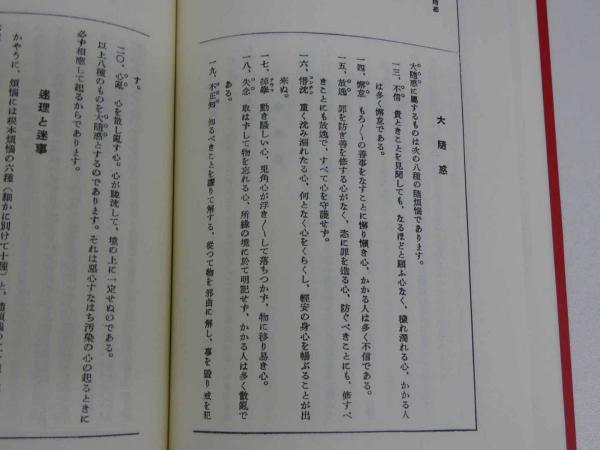 隨惑
大隨惑
大隨惑に屬するものは次の八種の隨煩惱であります。
一三、不信 貴ときことを見聞しても、なるほどと願ふ心なく、穢れ濁れる心、かかる人
は多く懈怠である。
一四、懈怠 もろ〳〵の善事をなすことに懈り懶き心、かかる人は多く不信である。
一五、放逸 罪を防ぎ善を修する心がなく、恣に罪を造る心、防ぐべきことにも、修すべ
きことにも放逸で、すべて心を守護せず。
一六、惛沈 重く沈み溺れたる心、何となく心をくらくし、輕安の身心を暢ぶることが出
來ぬ。
一七、掉擧 動き騷しい心、兎角心が浮き〳〵して落ちつかず、物に移り易き心。
一八、失念 取はずして物を忘れる心、所緣の境に於て明記せず、かかる人は多く散亂で
ある。
一九、不正知 知るべきことを謬りて解する、從つて物を邪曲に解し、事を毀り戒を犯
す。
二〇、心亂 心を散し亂す心。心が馳流して、境の上に一定せぬのである。
以上八種のものを大隨惑とするのであります。それは惡心すなはち汚染の心の起るときに
必ず相應して起るからであります。
迷理と迷事
かやうに、煩惱には根本煩惱の六種(細かに別けて十種)と、隨煩惱の二十